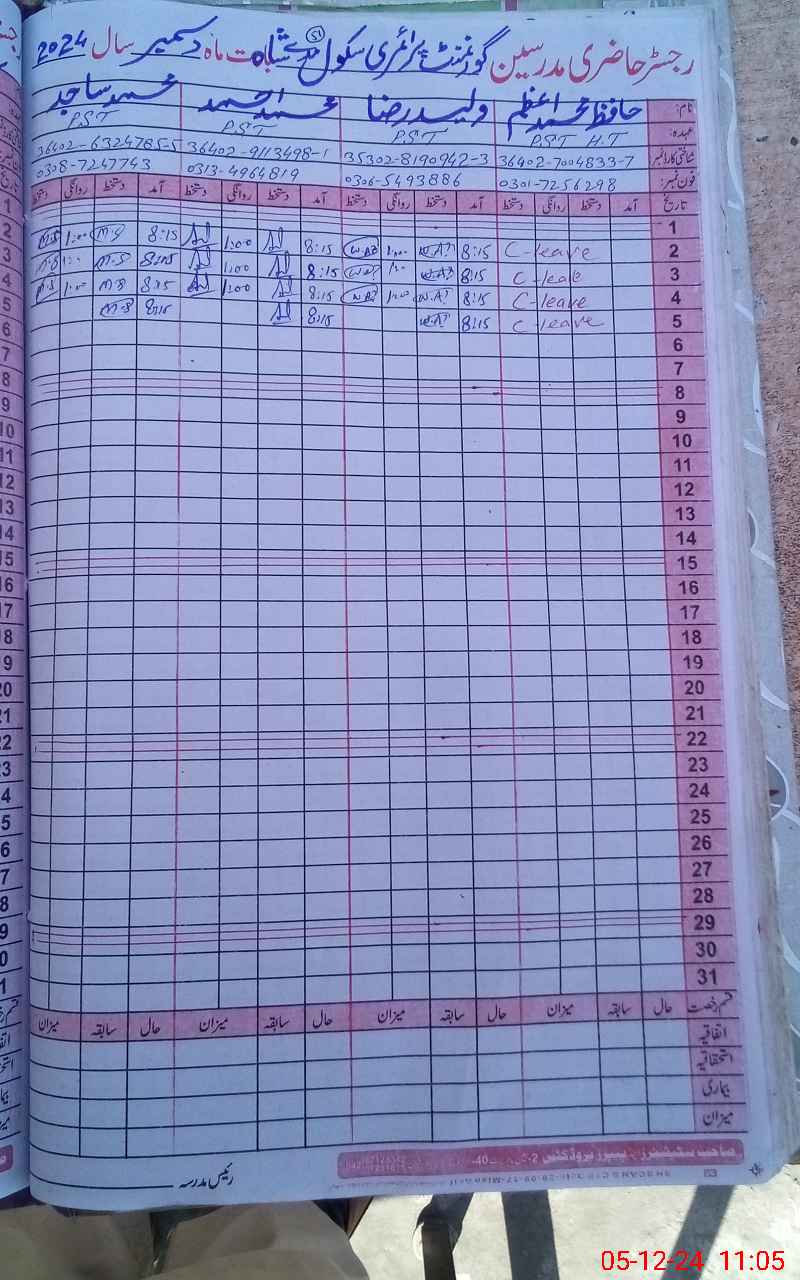 رجسٹر حاضری مدرسین گورنمنٹ پرائمری سکول شاہ ت ماہ دسمبر سال 2024
نام: حافظ محمد اعظم ولید رضا محمد احمد محمد ساجد
عہدہ: P.S.T H.T P.S.T P.S.T P.S.T
شناختی کارڈ نمبر 36402-7004833-7 35302-8190942-3 36402-9113498-1 36402-6324785-5
فون نمبر: 0301-7256298 0306-5493886 0313-4964819 0308-7247743
تاریخ آمد دستخط روانگی دستخط آمد دستخط روانگی دستخط آمد دستخط روانگی دستخط آمد دستخط روانگی دستخط
1
2 C-leave 8:15 W.A? 1:00 8:15 1:00 8:15 M.S 1:00 M.S
3 C-leave 8:15 W.A? 1:00 8:15 1:00 8:15 M.S M.S
4 C-leave 8:15 W.A? 1:00 8:15 1:00 8:15 M.S 1:00 M.S
5 C-leave 8:15 W.A? 8:15 8:15 M.S
6
7
8
9
10
11
12
13
14
15
16
17
18
19
20
21
22
23
24
25
26
27
28
29
30
31
قسم رخصت حال سابقہ میزان حال سابقہ میزان حال سابقہ میزان حال سابقہ میزان
اتفاقیہ
استحقاقیہ
بیماری
میزان
رئیس مدرسہ
05-12-24 11:05